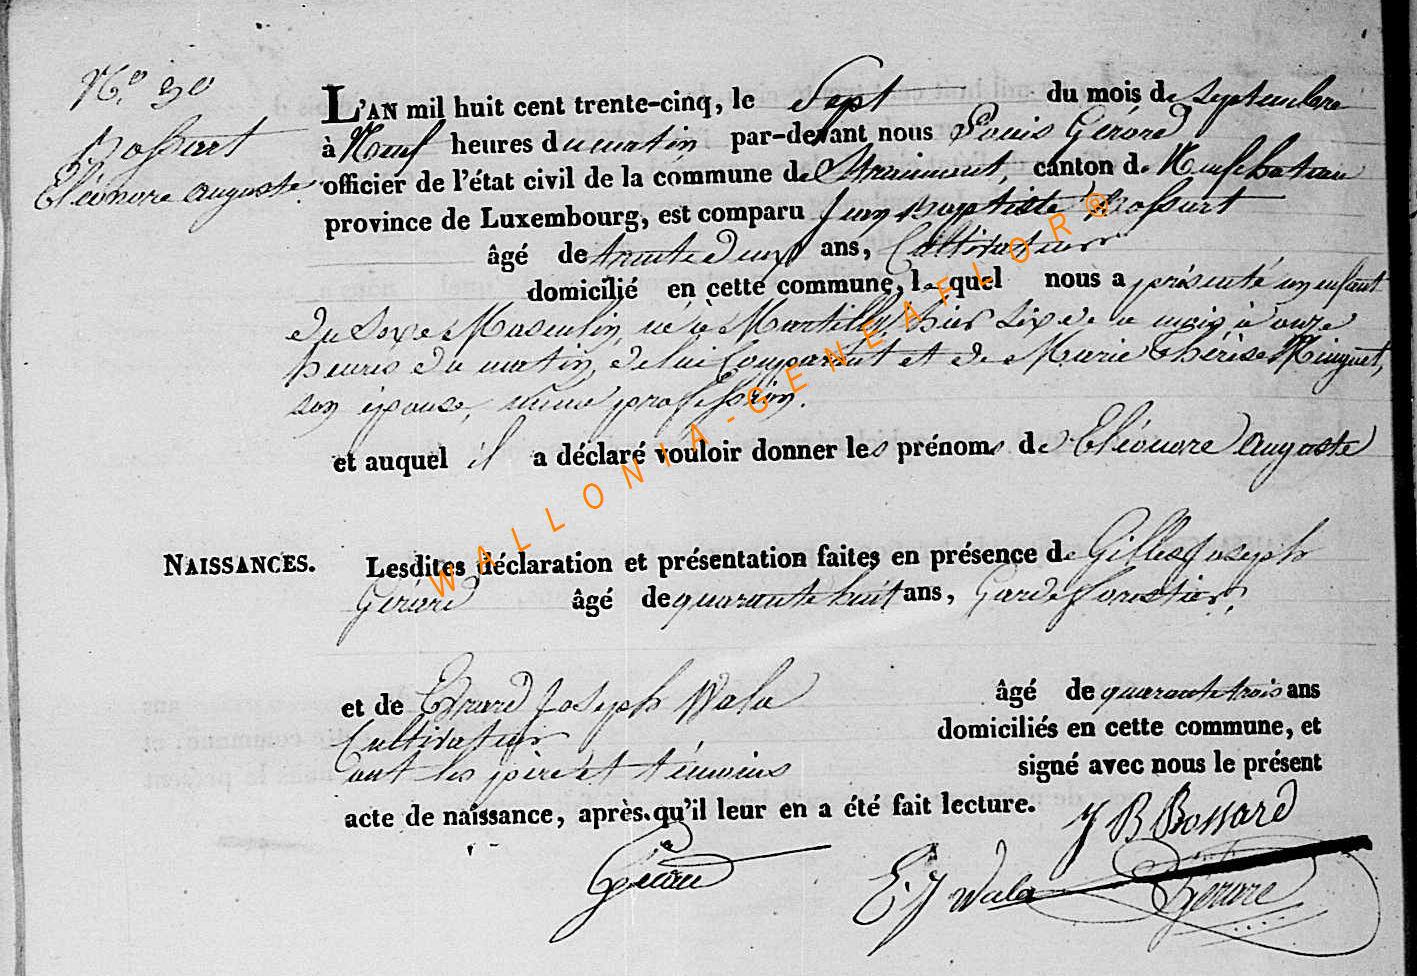 N.º 30
Bossart
Eléonore Auguste.
L'AN mil huit cent trente-cinq, le Sept du mois de Septembre
à Neuf heures du matin par-devant nous Louis Gérard
officier de l'état civil de la commune de Straimont, canton de Neufchateau
province de Luxembourg, est comparu Jean Baptiste Bossart
âgé de trente deux ans, Cultivateur
domicilié en cette commune, lequel nous a présenté un enfant
du Sexe Masculin, né à Martilly, hier six de ce mois, à onze
heures du matin, de lui Comparant et de Marie Thérèse Minguet,
son épouse, même profession.
et auquel il a déclaré vouloir donner les prénoms de Eléonore Auguste
NAISSANCES.
Lesdites déclaration et présentation faites en présence de Gilles Joseph
Gérard âgé de quarante huit ans, Garde forestier,
et de Erard Joseph Wala âgé de quarante trois ans
Cultivateur domiciliés en cette commune, et
ont les père et témoins signé avec nous le présent
acte de naissance, après qu'il leur en a été fait lecture.
J B Bossard
Gérard
E. J Wala
Gérard
WALLONIA-GENEAFLOR®